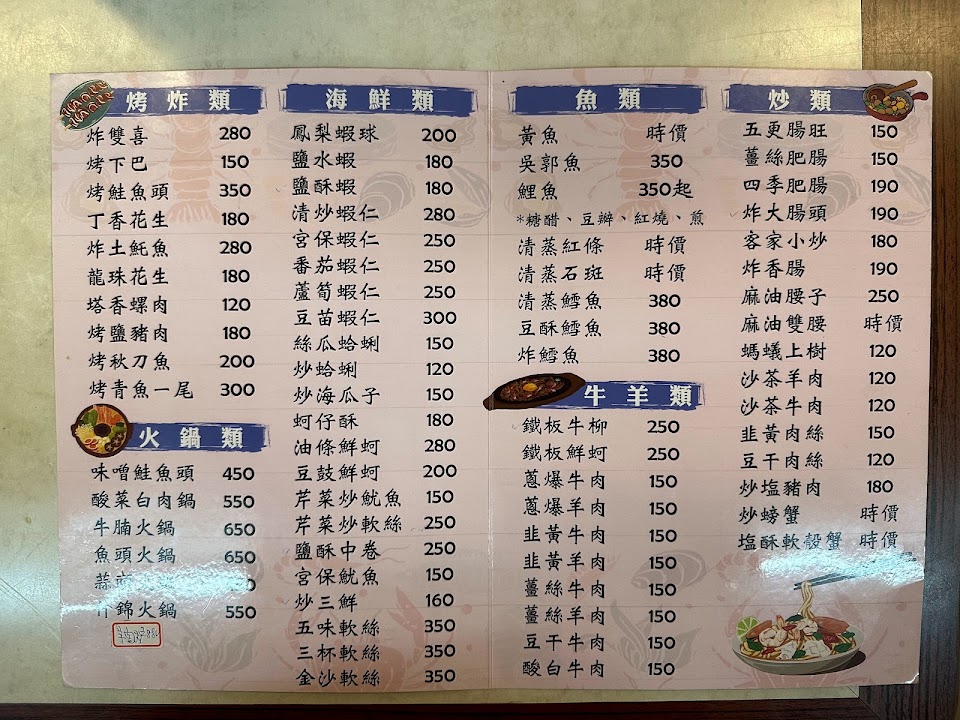 烤炸類
炸雙喜 280
烤下巴 150
烤鮭魚頭 350
丁香花生 180
炸土魠魚 280
龍珠花生 180
塔香螺肉 120
烤鹽豬肉 180
烤秋刀魚 200
烤青魚一尾 300
火鍋類
味噌鮭魚頭 450
酸菜白肉鍋 550
牛腩火鍋 650
魚頭火鍋 650
什錦火鍋 550
海鮮類
鳳梨蝦球 200
鹽水蝦 180
鹽酥蝦 180
清炒蝦仁 280
宮保蝦仁 250
番茄蝦仁 250
蘆筍蝦仁 250
豆苗蝦仁 300
絲瓜蛤蜊 150
炒蛤蜊 120
炒海瓜子 150
蚵仔酥 180
油條鮮蚵 280
豆鼓鮮蚵 200
芹菜炒魷魚 150
芹菜炒軟絲 250
鹽酥中卷 250
宮保魷魚 150
炒三鮮 160
五味軟絲 350
三杯軟絲 350
金沙軟絲 350
魚類
黃魚 時價
吳郭魚 350
鯉魚 350起
*糖醋、豆瓣、紅燒、煎
清蒸紅條 時價
清蒸石斑 時價
清蒸鱈魚 380
豆酥鱈魚 380
炸鱈魚 380
牛羊類
鐵板牛柳 250
鐵板鮮蚵 250
蔥爆牛肉 150
蔥爆羊肉 150
韭黃牛肉 150
韭黃羊肉 150
薑絲牛肉 150
薑絲羊肉 150
豆干牛肉 150
酸白牛肉 150
炒類
五更腸旺 150
薑絲肥腸 150
四季肥腸 190
炸大腸頭 190
客家小炒 180
炸香腸 190
麻油腰子 250
麻油雙腰 時價
螞蟻上樹 120
沙茶羊肉 120
沙茶牛肉 120
韭黃肉絲 150
豆干肉絲 120
炒塩豬肉 180
炒螃蟹 時價
塩酥軟殼蟹 時價